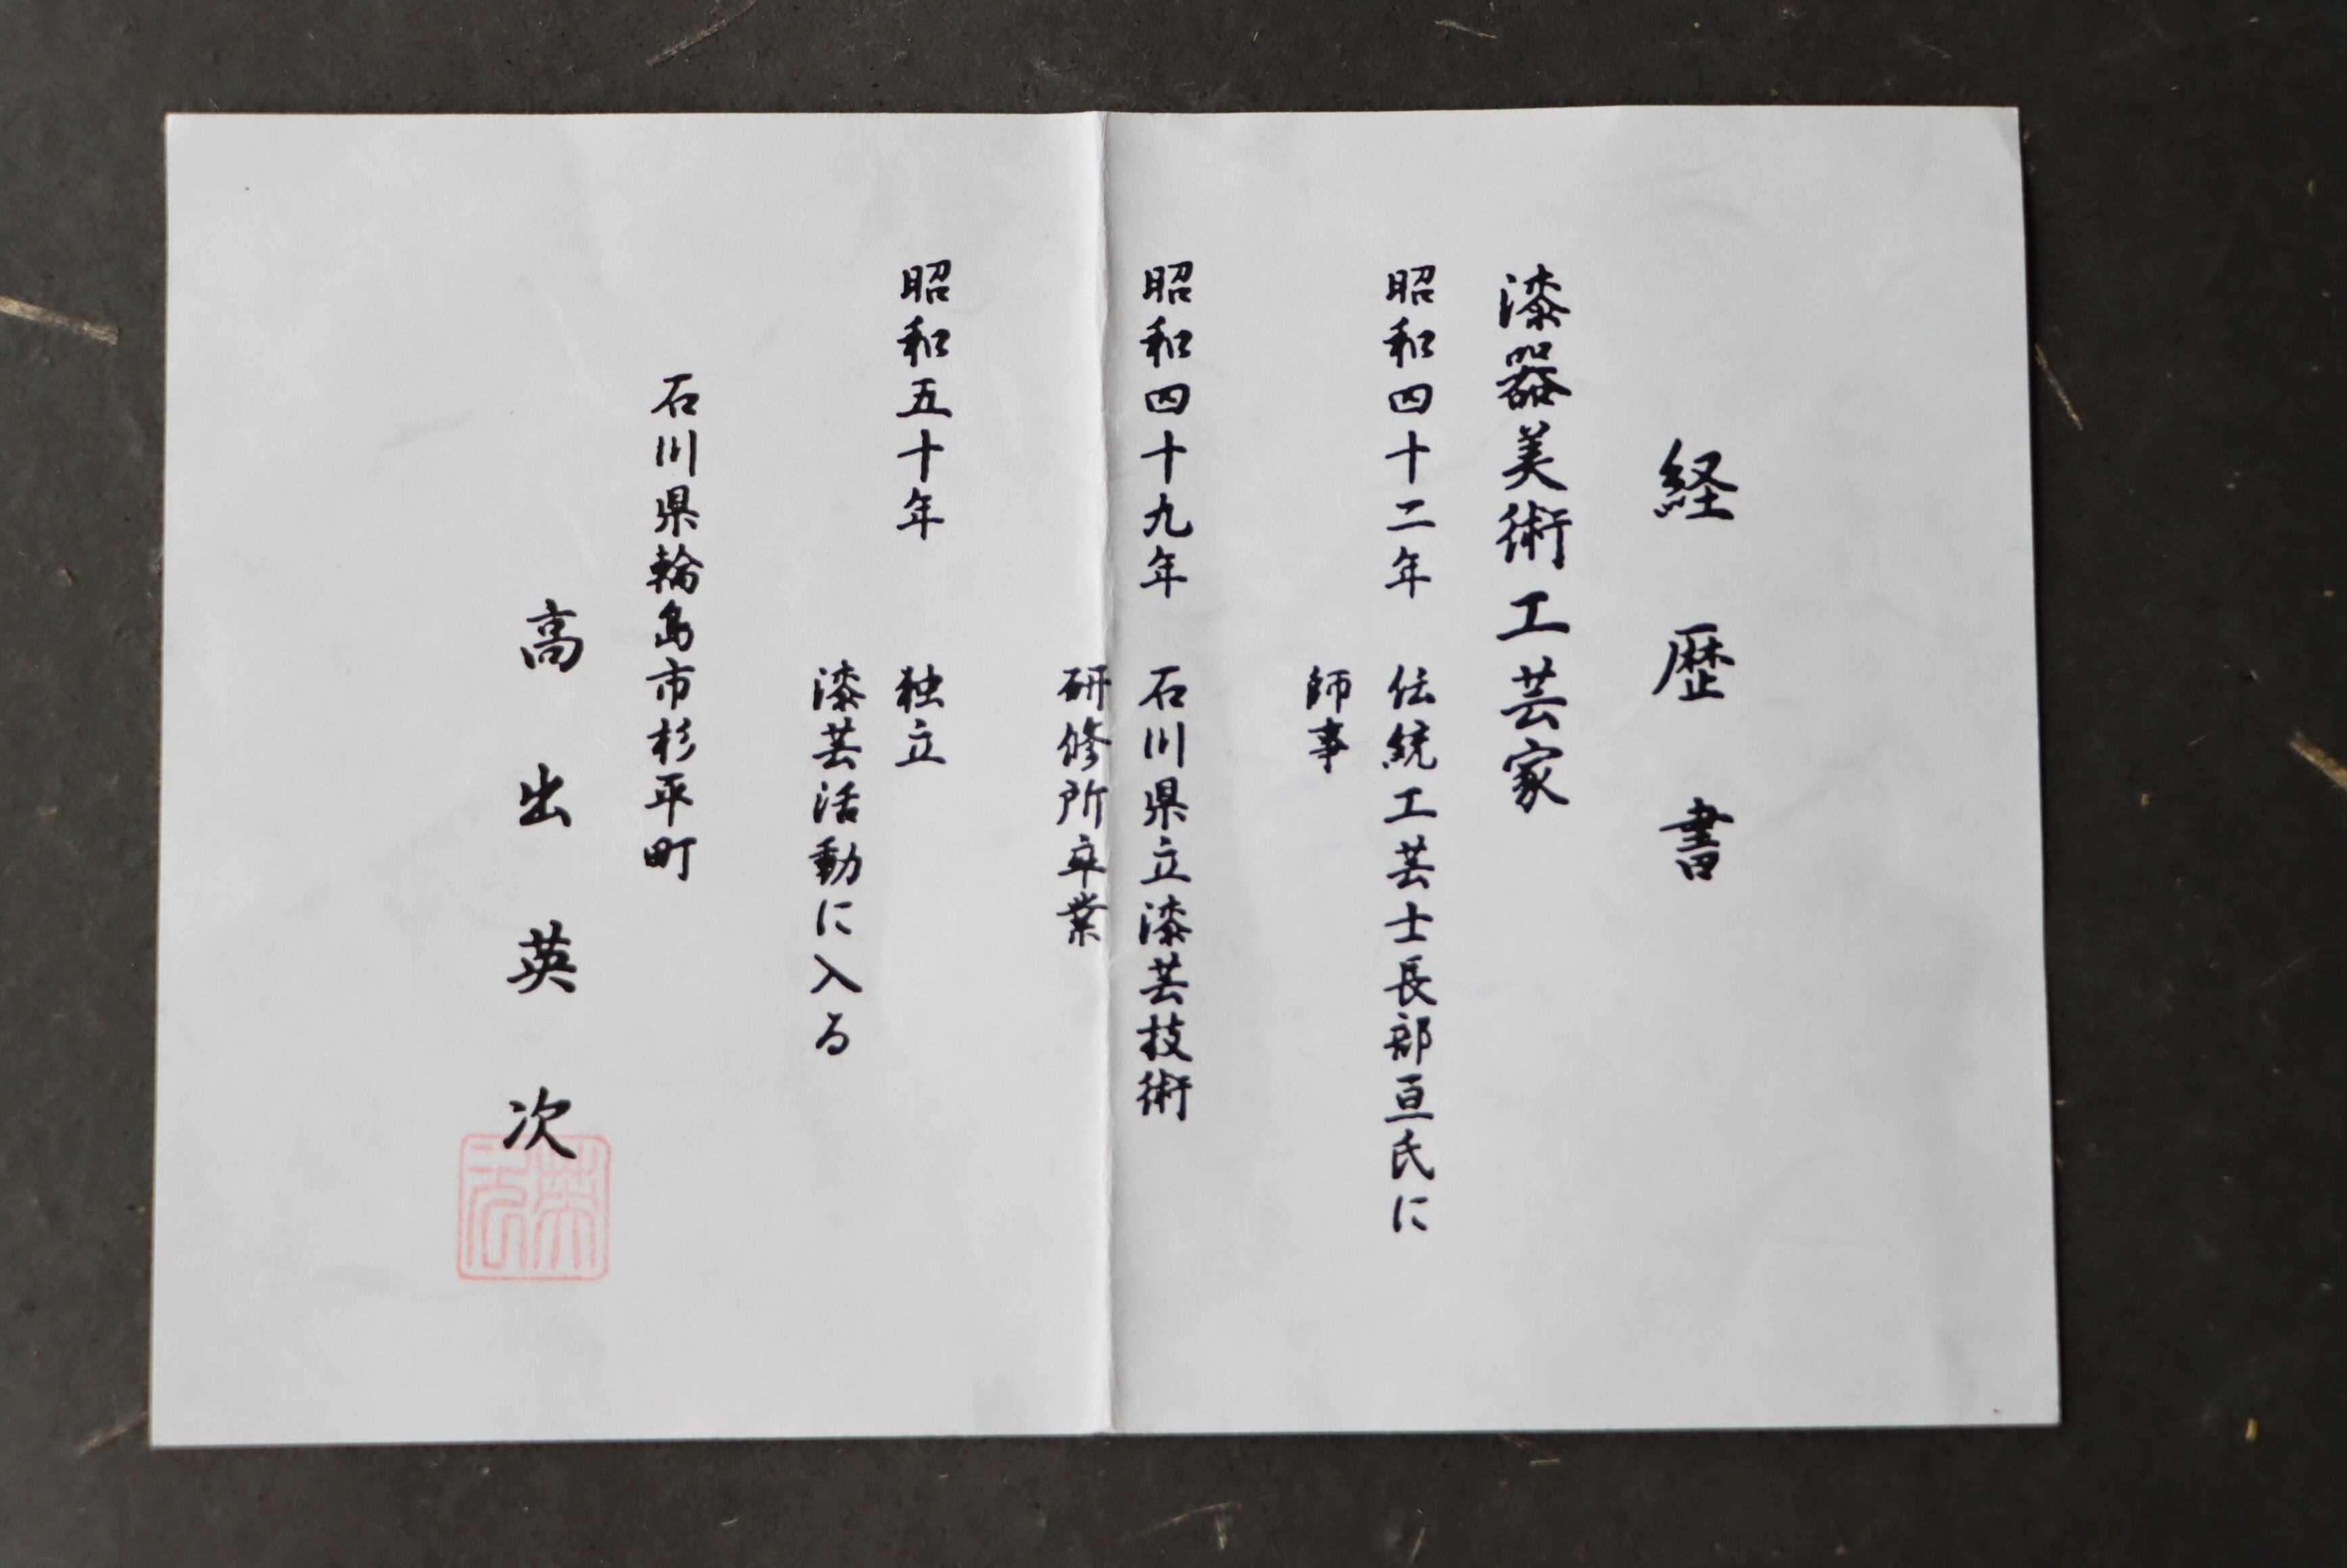 経歴書
漆器美術工芸家
昭和四十二年 伝統工芸士長部亘氏に
師事
昭和四十九年 石川県立漆芸技術
研修所卒業
昭和五十年 独立
漆芸活動に入る
石川県輪島市杉平町
高出英次